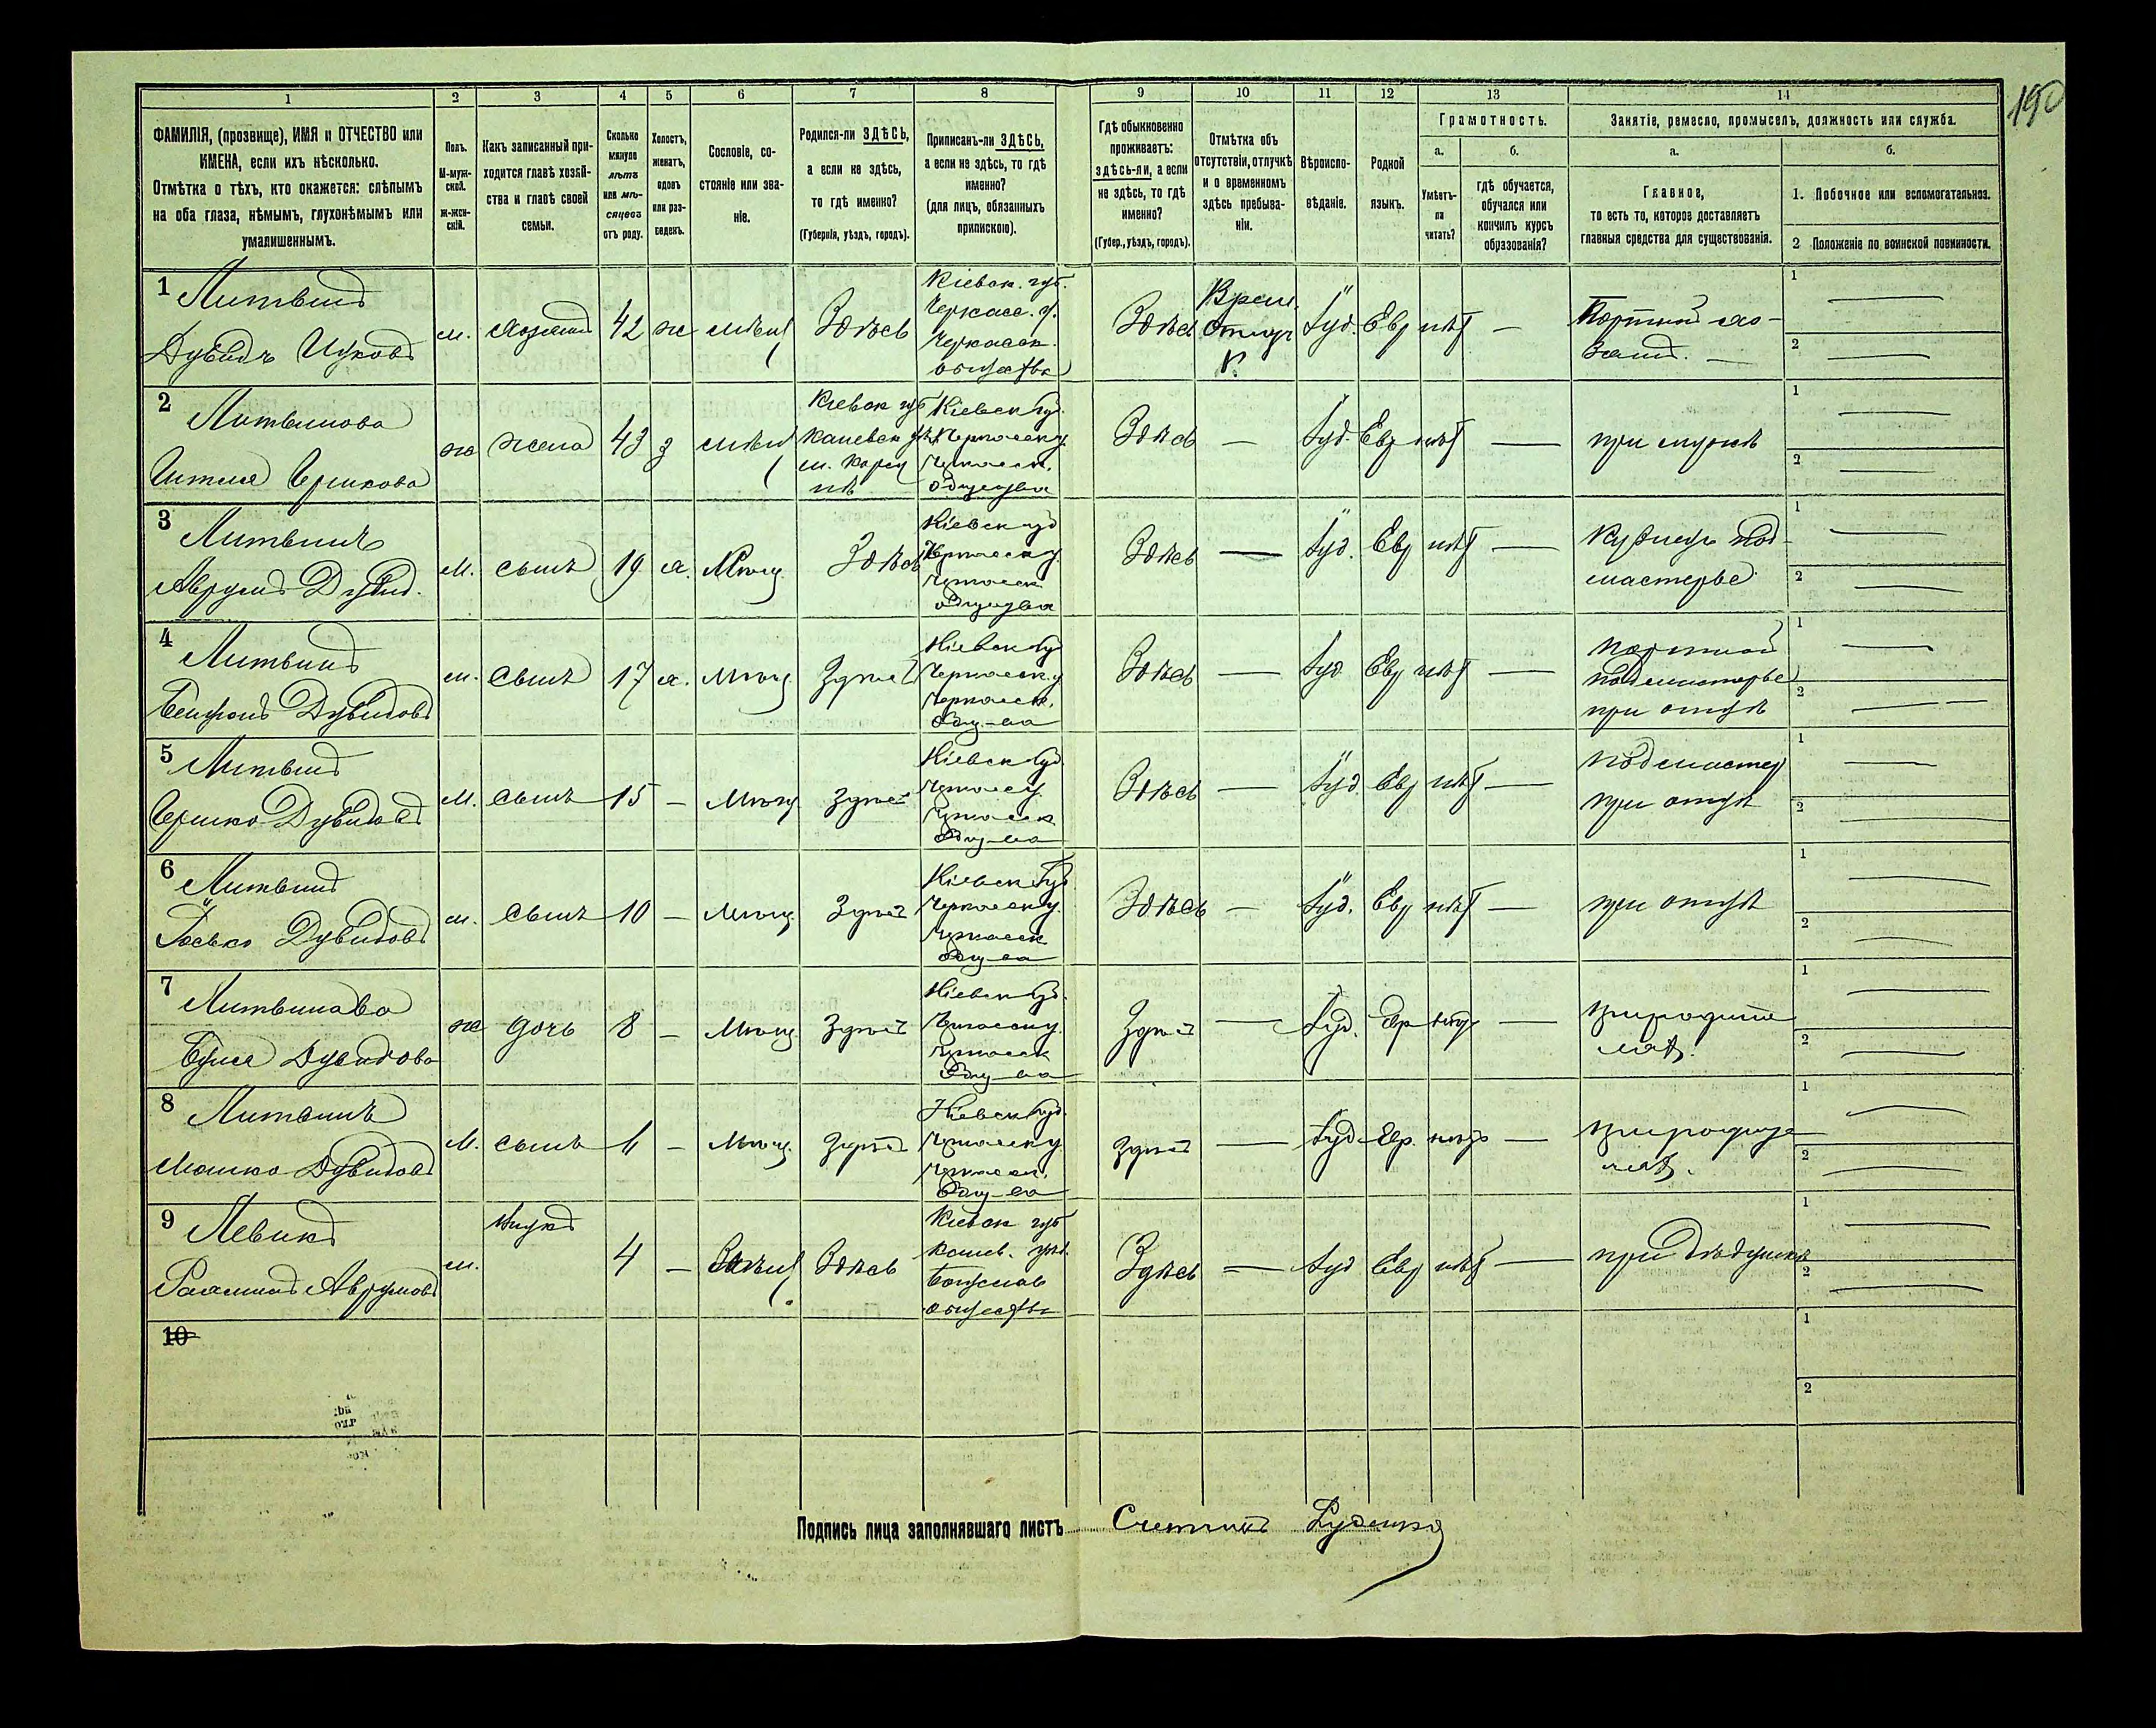 190
1 2 3 4 5 6 7 8 9 10 11 12 13 14
ФАМИЛІЯ, (прозвище), ИМЯ и ОТЧЕСТВО или ИМЕНА, если ихъ нѣсколько.
Отмѣтка о тѣхъ, кто окажется: слѣпымъ на оба глаза, нѣмымъ, глухонѣмымъ или умалишеннымъ.
Полъ.
М-мужской.
ж-женскій.
Какъ записанный приходится главѣ хозяйства и главѣ своей семьи.
Сколько минуло лѣтъ или мѣсяцевъ отъ роду.
Холостъ, женатъ, вдовъ или разведенъ.
Сословіе, состояніе или званіе.
Родился-ли ЗДѢСЬ, а если не здѣсь, то гдѣ именно?
(Губернія, уѣздъ, городъ).
Приписанъ-ли ЗДѢСЬ, а если не здѣсь, то гдѣ именно?
(для лицъ, обязанныхъ припискою).
Гдѣ обыкновенно проживаетъ: здѣсь-ли, а если не здѣсь, то гдѣ именно?
(Губер., уѣздъ, городъ).
Отмѣтка объ отсутствіи, отлучкѣ и о временномъ здѣсь пребываніи.
Вѣроисповѣданіе.
Родной языкъ.
Грамотность.
а.
Умѣетъ-ли читать?
б.
гдѣ обучается, обучался или кончилъ курсъ образованія?
Занятіе, ремесло, промыселъ, должность или служба.
а.
Главное,
то есть то, которое доставляетъ главныя средства для существованія.
б.
1. Побочное или вспомогательное.
2 Положеніе по воинской повинности.
1 Литвинъ
Дувидъ Ицковъ
м. хозяинъ 42 ж мѣщ Здѣсь
Кіевск. губ.
Черкасс. у.
Черкасск.
общества
Здѣсь
Врем.
Отлуч
Іуд. Евр нѣт —
Портной хо-
зяинъ. —
1 —
2 —
2 Литвинова
ж жена 43 з мѣщ
Кіевск губ
Каневск у.
м. Корсу
нѣ
Кіевск губ.
Черкасск у.
Черкасск.
общества
Здѣсь — Іуд. Евр нѣт — при мужѣ
1 —
2 —
3 Литвинъ
Аврумъ Дувид.
м. сынъ 19 х. Мѣщ. Здѣсь
Кіевск губ
Черкасск у.
Черкасск
общества
Здѣсь — Іуд. Евр нѣт —
мастерье
1 —
2 —
4 Литвинъ
Дувидовъ
м. сынъ 17 х. Мѣщ. Здѣсь
Кіевск губ
Черкасск. у
Черкасск.
общ-ва
Здѣсь — Іуд Евр нѣт —
портной
подмастерье
при отцѣ
1 —
2 —
5 Литвинъ
Гершко Дувидовъ
м. сынъ 15 — Мѣщ. Здѣсь
Кіевск губ.
Черкасск у.
Черкасск
общ-ва
Здѣсь — Іуд Евр нѣт —
подмастер
при отцѣ
1 —
2 —
6 Литвинъ
Іосько Дувидовъ
м. сынъ 10 — Мѣщ. Здѣсь
Кіевск губ
Черкасск у.
Черкасск
общ-ва
Здѣсь — Іуд. Евр нѣт — при отцѣ
1 —
2 —
7 Литвинава
Дувидова
ж дочь 8 — Мѣщ Здѣсь
Кіевск губ.
Черкасск у.
Черкасск
общ-ва
Здѣсь — Іуд. Евр нѣт —
при родите
ляхъ.
1 —
2 —
8 Литвинъ
Мошко Дувидовъ
м. сынъ — Мѣщ. Здѣсь
Кіевск губ.
Черкасск у.
Черкасск.
общ-ва
Здѣсь — Іуд Евр. нѣт —
при родите
ляхъ.
1 —
2 —
9 Левинъ
Аврумовъ
м. внукъ 4 — Здѣсь
Кіевск губ
Канев. уѣз.
Богуслав
общества
Здѣсь — Іуд Евр нѣт — при дѣдушкѣ
1 —
2 —
10
1
2
Подпись лица заполнявшаго листъ Счетчикъ